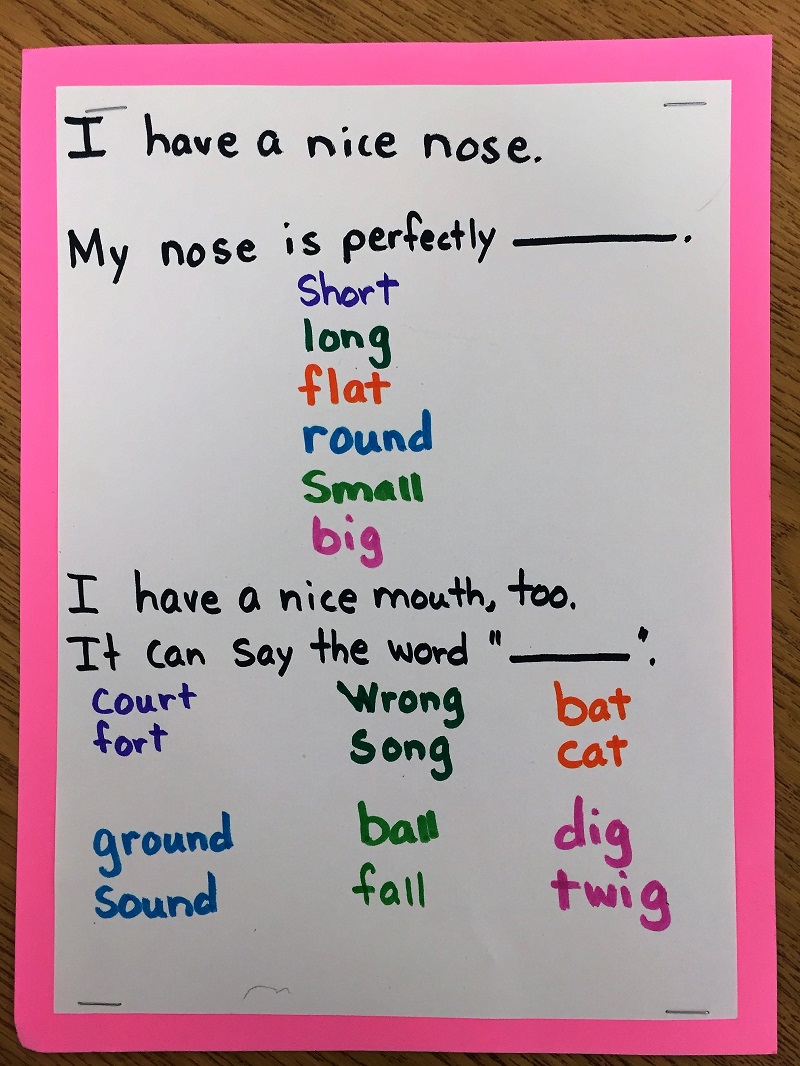 I have a nice nose.
My nose is perfectly ________.
Short
long
flat
round
Small
big
I have a nice mouth, too.
It can say the word "______".
court Wrong bat
fort Song cat
ground ball dig
Sound fall twig